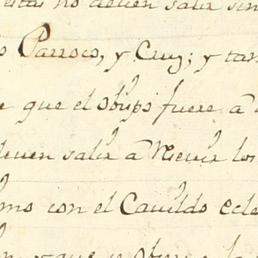 estas no deven salir sin
Parroco, y Cruz; y tam
que el obispo fuere à
deven salir à recivir los
mo con el Cavildo ecle